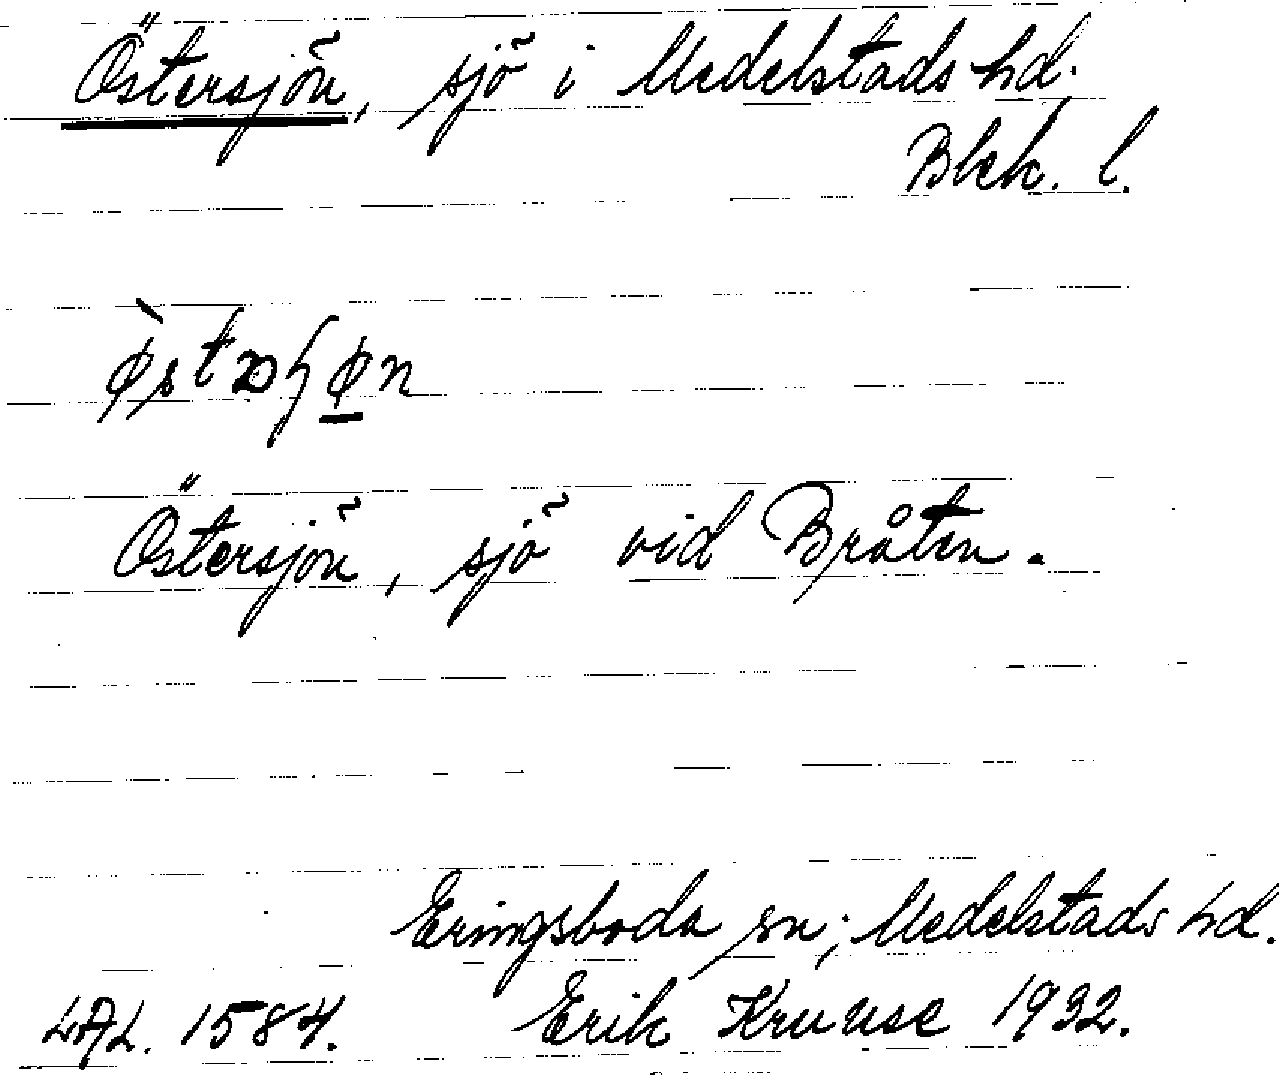 Östersjön, sjö i Medelstads hd.
Blek. l.
Östersjön, sjö vid Bråten.
Eringsboda sn; Medelstads hd.
LAL. 1584. Erik Kruuse 1932.